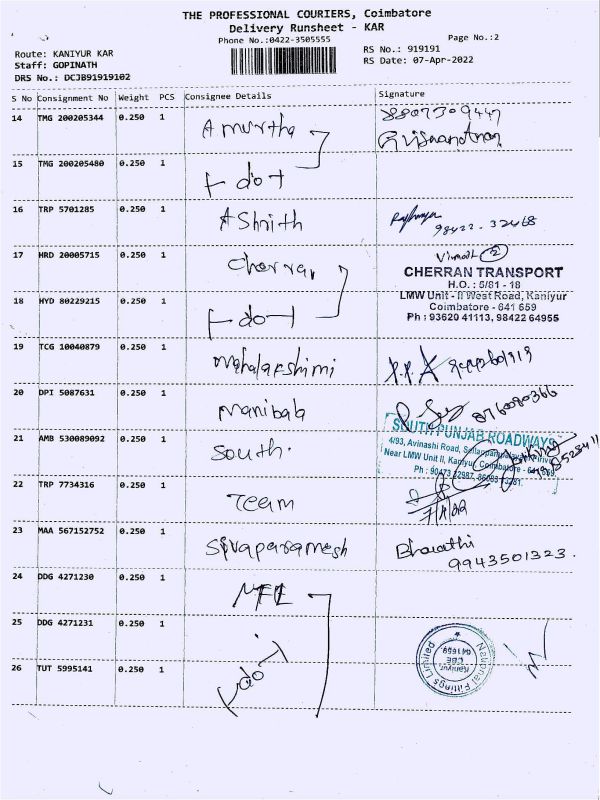 THE PROFESSIONAL COURIERS, Coimbatore
Delivery Runsheet - KAR
Phone No.:0422-3505555
Page No.:2
Route: KANIYUR KAR
Staff: GOPINATH
DRS No.: DCJB91919102
RS No.: 919191
RS Date: 07-Apr-2022
S No Consignment No Weight PCS Consignee Details Signature
14 TMG 200205344 0.250 1 Amurtha 8807309447
15 TMG 200205480 0.250 1 F do t
16 TRP 5701285 0.250 1 AShrith 98422-32468
17 HRD 20005715 0.250 1 Cherran Vimal 2
CHERRAN TRANSPORT
H.O. : 5/81 - 18
LMW Unit - II West Road, Kaniyur
Coimbatore - 641 659
Ph : 93620 41113, 98422 64955
18 HYD 80229215 0.250 1 F do t
19 TCG 10040879 0.250 1 Mahalakshimi P.P.A
20 DPI 5087631 0.250 1 Manibala
21 AMB 530089092 0.250 1 South.
SOUTH PUNJAB ROADWAYS
4/93, Avinashi Road,
Near LMW Unit II, Kaniyur, Coimbatore - 641 659
22 TRP 7734316 0.250 1 Team 7/4/22
23 MAA 567152752 0.250 1 Sivaparamesh Bharathi
9943501323.
24 DDG 4271230 0.250 1 NFL
25 DDG 4271231 0.250 1
26 TUT 5995141 0.250 1 F do t
National Fittings Limited
Kaniyur,
CBE
641659